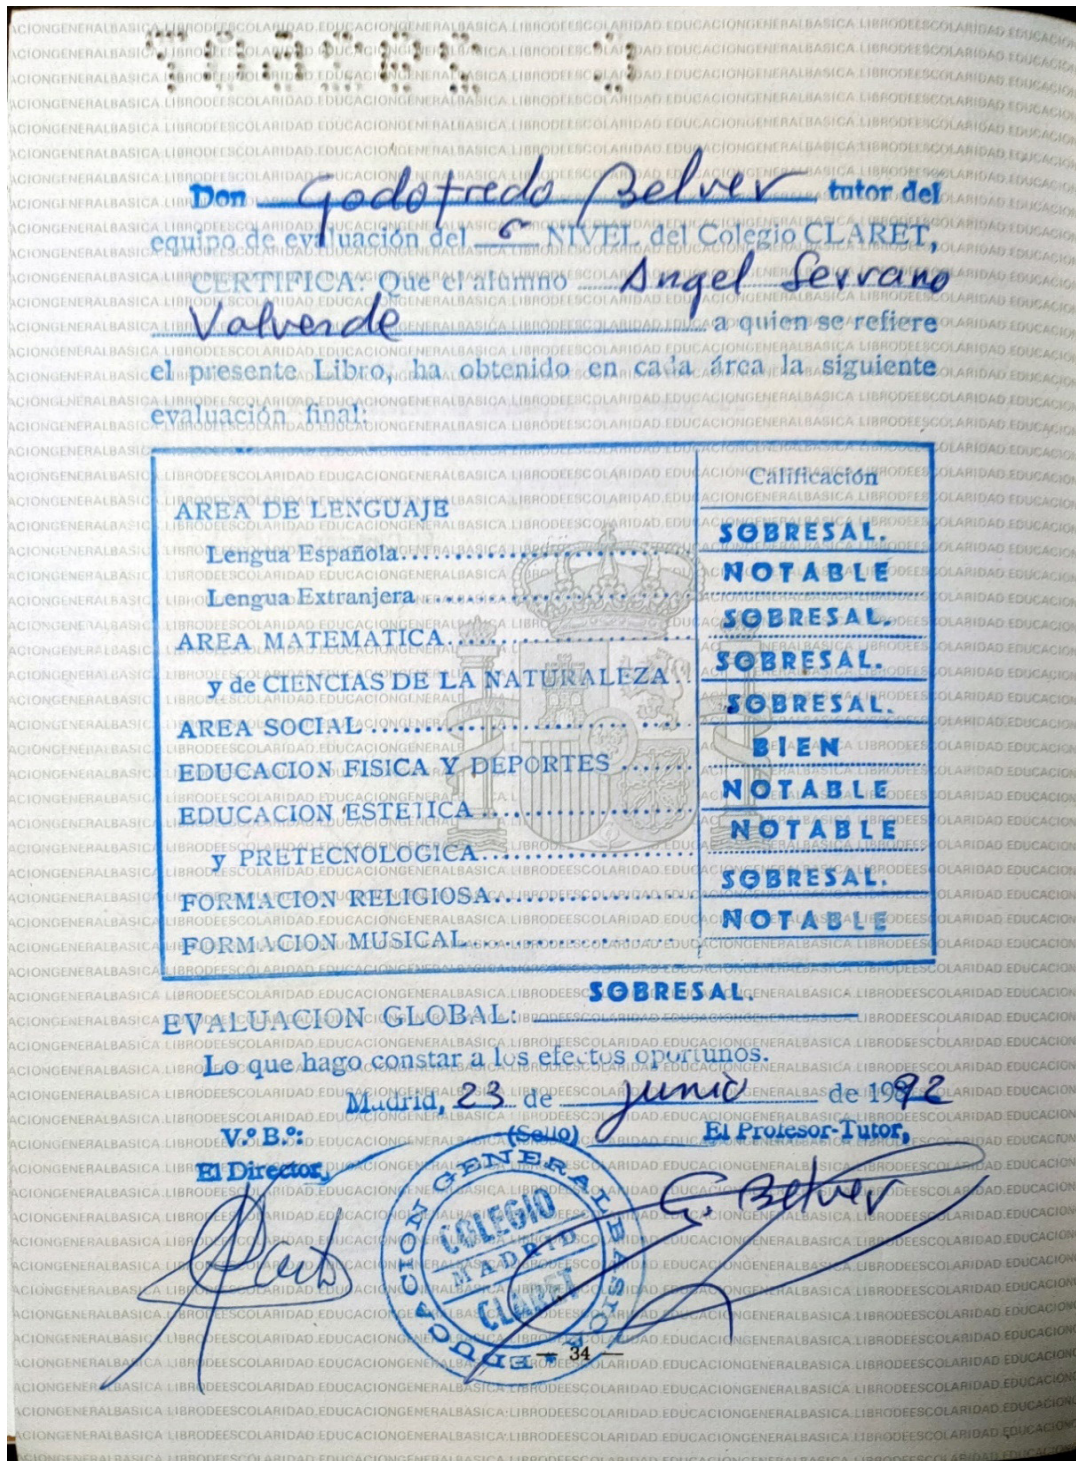 Don Godofredo Belver tutor del
equipo de evaluación del NIVEL del Colegio CLARET,
CERTIFICA: Que el alumno Angel Serrano
Valverde a quien se refiere
el presente Libro, ha obtenido en cada área la siguiente
evaluación final:
Calificación
AREA DE LENGUAJE
Lengua Española SOBRESAL.
Lengua Extranjera NOTABLE
AREA MATEMATICA SOBRESAL.
y de CIENCIAS DE LA NATURALEZA SOBRESAL.
AREA SOCIAL SOBRESAL.
EDUCACION FISICA Y DEPORTES BIEN
EDUCACION ESTETICA NOTABLE
y PRETECNOLOGICA NOTABLE
FORMACION RELIGIOSA SOBRESAL.
FORMACION MUSICAL NOTABLE
EVALUACION GLOBAL: SOBRESAL.
Lo que hago constar a los efectos oportunos.
Madrid, 23 de junio de 1992
V.º B.º: (Sello) El Profesor-Tutor,
El Director,
G. Belver
EDUCACION GENERAL BASICA
COLEGIO
MADRID
CLARET
— 34 —